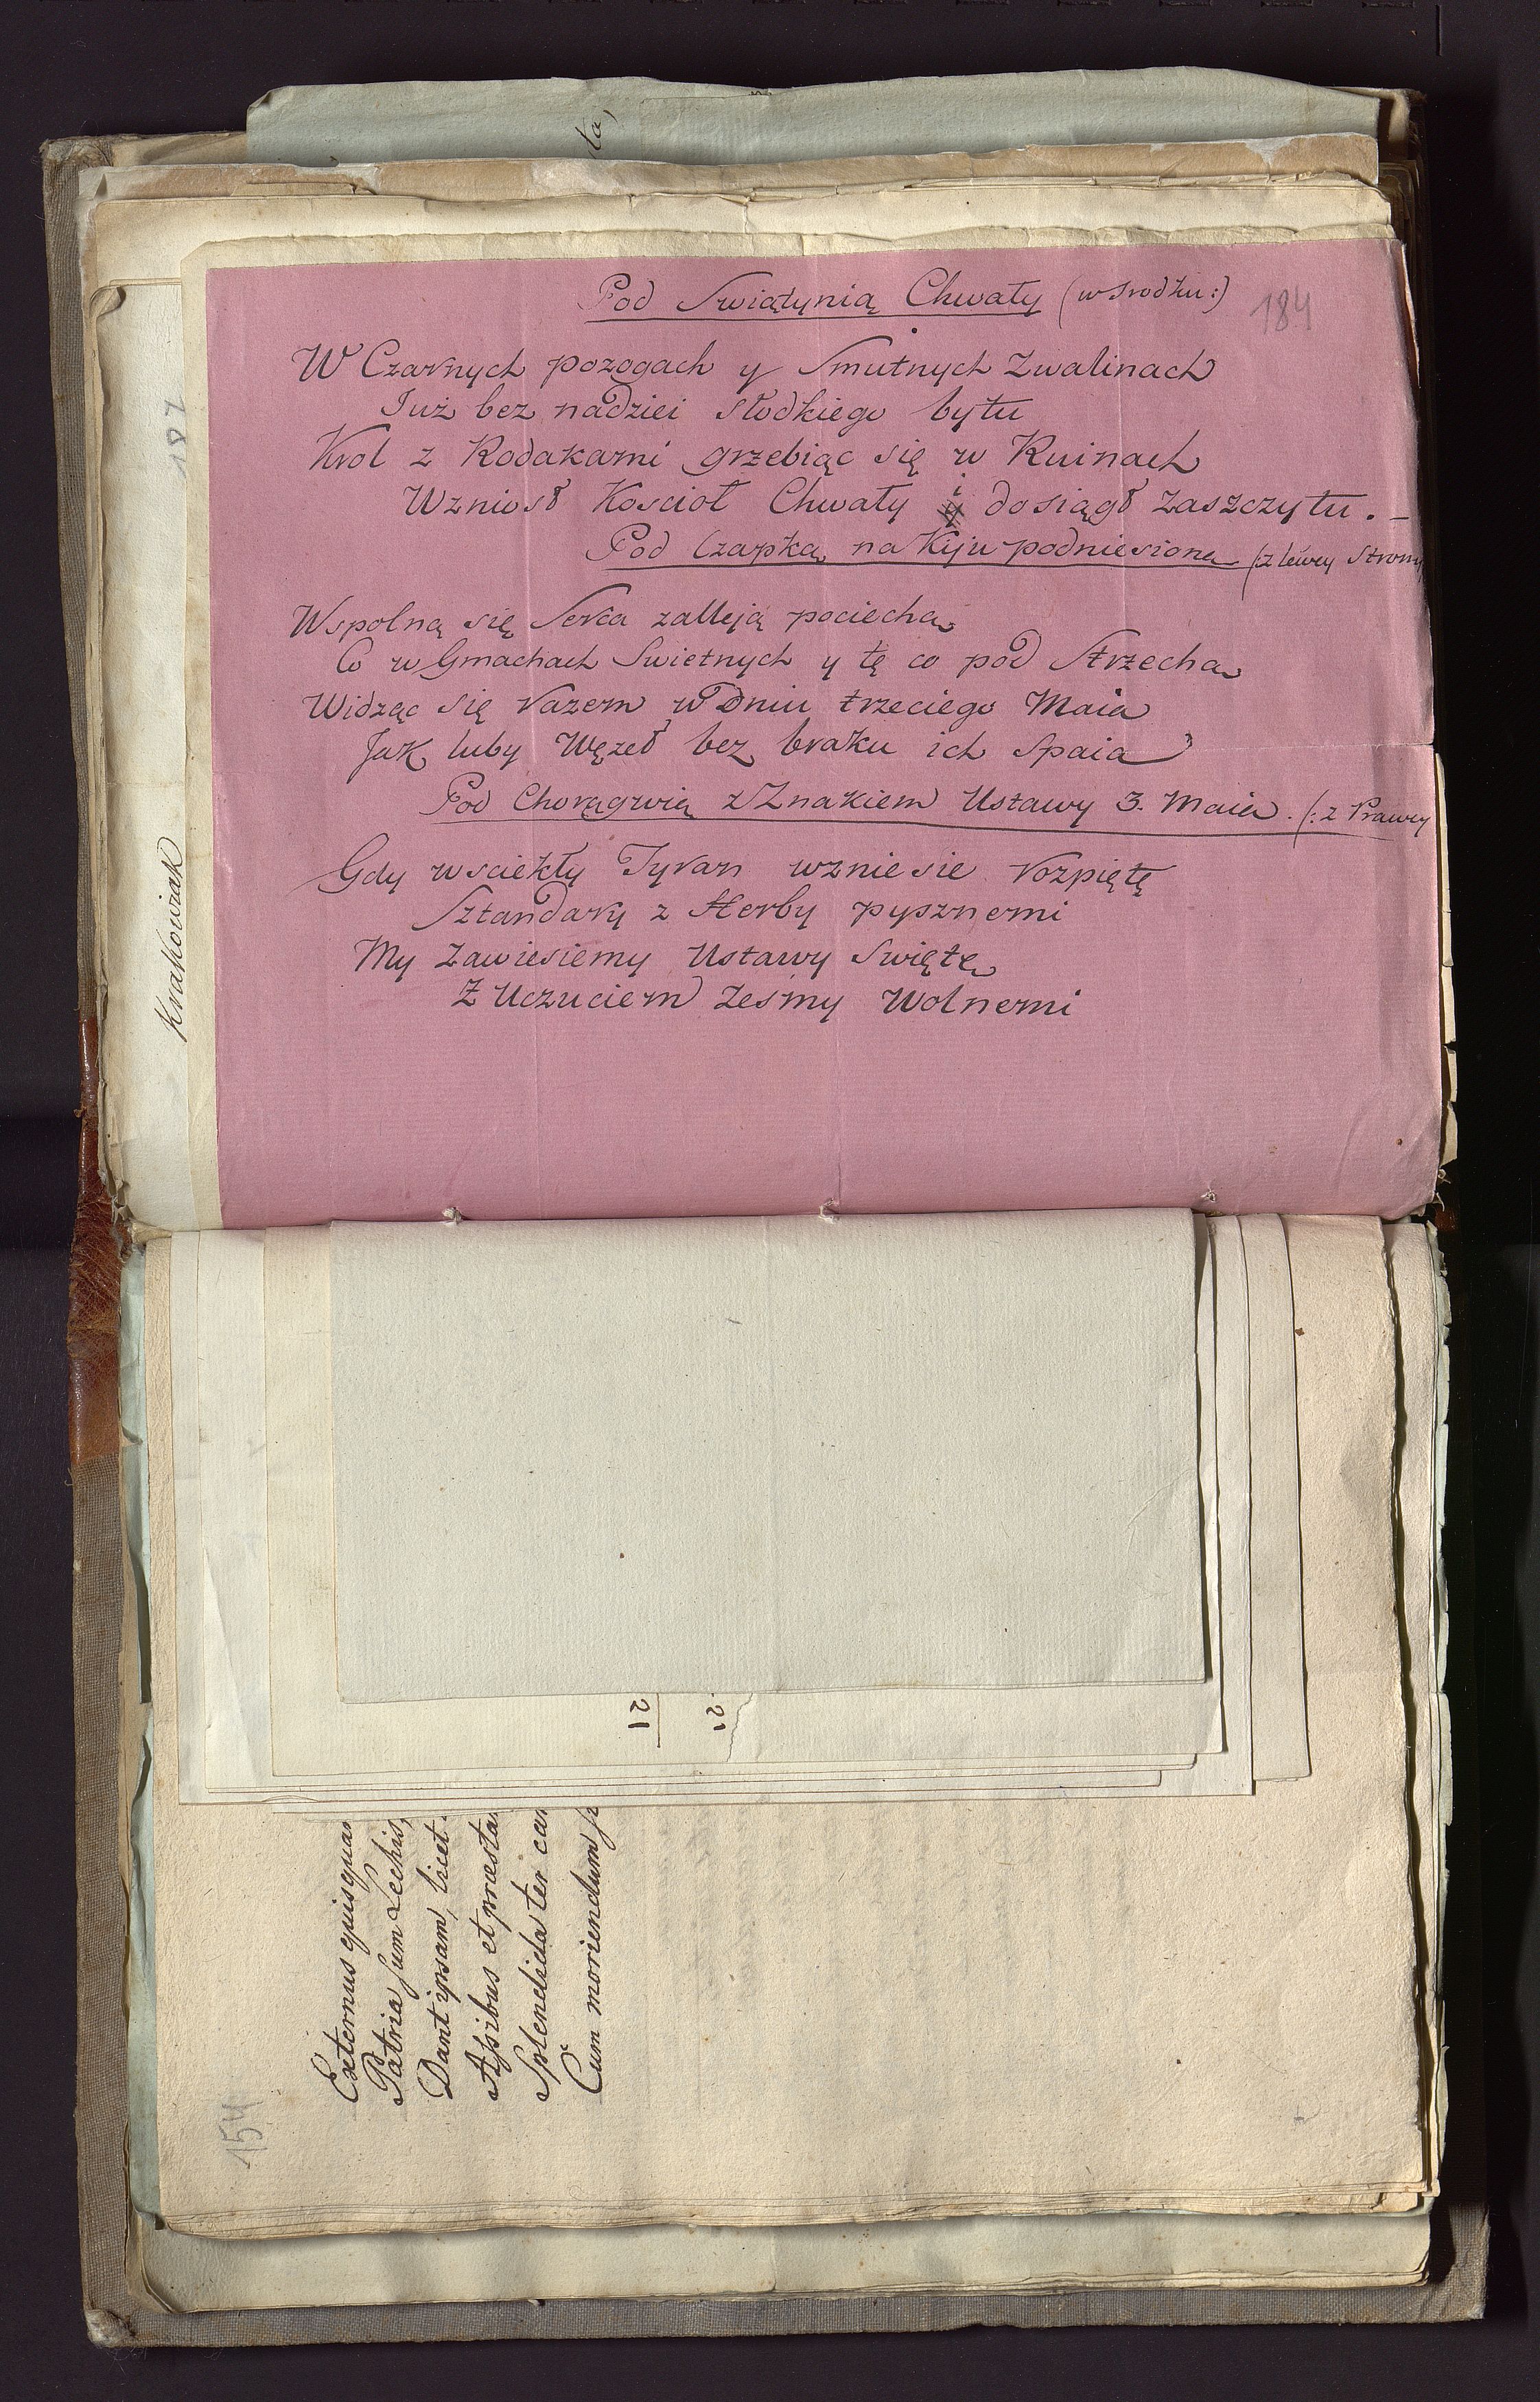 Pod Swiątynią Chwały (w srodku:)
184
W Czarnych pozogach y Smutnych Zwalinach
Już bez nadziei słodkiego bytu
Krol z Rodakami grzebiąc się w Ruinach
Wzniosł Kosciół Chwały i dosiągł zaszczytu. –
Pod Czapką na Kiju podniesioną (: z lewey Strony
Wspolną się Serca zalleją pociechą
Co w Gmachach Swietnych y tę co pod Strzechą
Widząc się razem w Dniu trzeciego Maia
Jak luby Węzeł bez braku ich Spaia
Pod Chorągwią z Znakiem Ustawy 3. Maia. (: z Prawey
Gdy wsciekły Tyran wzniesie rozpiętę
Sztandary z Herby pysznemi
My Zawiesiemy Ustawy Swięte
Z Uczuciem zesmy Wolnemi
187
Krakowiak
ta,
21
2
Externus quisqua
Patria sum Lechis,
Dant ipsam, licet
Assibus et præsta
Splendida ter ca
Cum moriendum
154